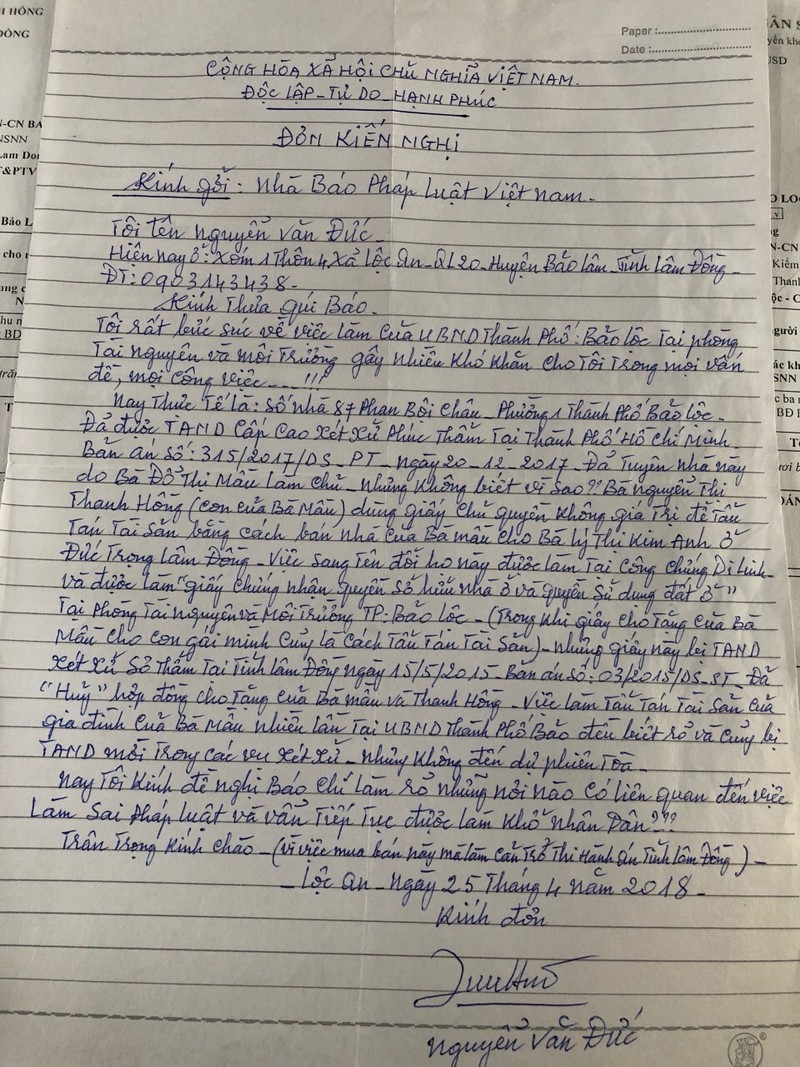 Paper :
Date :
CỘNG HÒA XÃ HỘI CHỦ NGHĨA VIỆT NAM.
ĐỘC LẬP - TỰ DO - HẠNH PHÚC
ĐƠN KIẾN NGHỊ
Kính gởi: Nhà Báo Pháp Luật Việt Nam.
Tôi tên Nguyễn Văn Đức -
Hiện nay ở: Xóm 1 Thôn 4 Xã Lộc An - QL20 - Huyện Bảo Lâm - Tỉnh Lâm Đồng -
ĐT: 0903143438 -
Kính Thưa Quí Báo -
Tôi rất bức sức về việc làm Của UBND Thành Phố: Bảo Lộc Tại phòng
Tài nguyên và môi Trường gây nhiều Khó Khăn Cho Tôi Trong mọi vấn
đề, mọi Công việc ---!!!
Nay Thực Tế Là: Số nhà 87 Phan Bội Châu - Phường 1 Thành Phố Bảo Lộc -
Đã được TAND Cấp Cao Xét Xử Phúc Thẩm Tại Thành Phố Hồ Chí Minh
Bản án số: 315/2017/DS - PT - ngày 20 - 12 - 2017 - Đã Tuyên nhà này
do Bà Đỗ Thị Mầu làm Chủ - Nhưng Không biết vì sao?! Bà Nguyễn Thị
Thanh Hồng (con của Bà Mầu) dùng giấy Chủ quyền Không giá Trị để Tẩu
Tán Tài Sản bằng cách bán nhà Của Bà mầu cho Bà Lý Thị Kim Anh ở
Đức Trọng Lâm Đồng - Việc sang Tên đổi họ này được làm Tại Công Chứng Di Linh -
và được làm "giấy Chứng nhận quyền Sở hữu nhà ở và quyền Sử dụng đất ở"
Tại Phòng Tài nguyên và Môi Trường TP: Bảo Lộc - (Trong Khi giấy cho Tặng Của Bà
Mầu Cho Con gái mình Cũng là Cách Tẩu Tán Tài Sản) - Nhưng giấy này bị TAND
Xét Xử Sơ Thẩm Tại Tỉnh Lâm Đồng ngày 15/5/2015 - Bản án số: 03/2015/DS - ST - Đã
"Hủy" hợp đồng cho Tặng của Bà mầu và Thanh Hồng - Việc làm Tẩu Tán Tài Sản của
gia đình Của Bà Mầu nhiều lần Tại UBND Thành Phố Bảo đều biết rõ và Cũng bị
TAND mời Trong các vụ xét xử - Nhưng Không đến dự phiên Tòa -
Nay Tôi Kính đề nghị Báo Chí Làm rõ những nơi nào Có liên quan đến việc
Làm Sai Pháp luật và vẫn Tiếp Tục được làm Khổ nhân Dân???
Trân Trọng Kính Chào - (Vì việc mua bán này mà làm Cản Trở Thi Hành án Tỉnh Lâm Đồng) -
- Lộc An - Ngày 25 Tháng 4 năm 2018 -
Kính đơn
Nguyễn Văn Đức